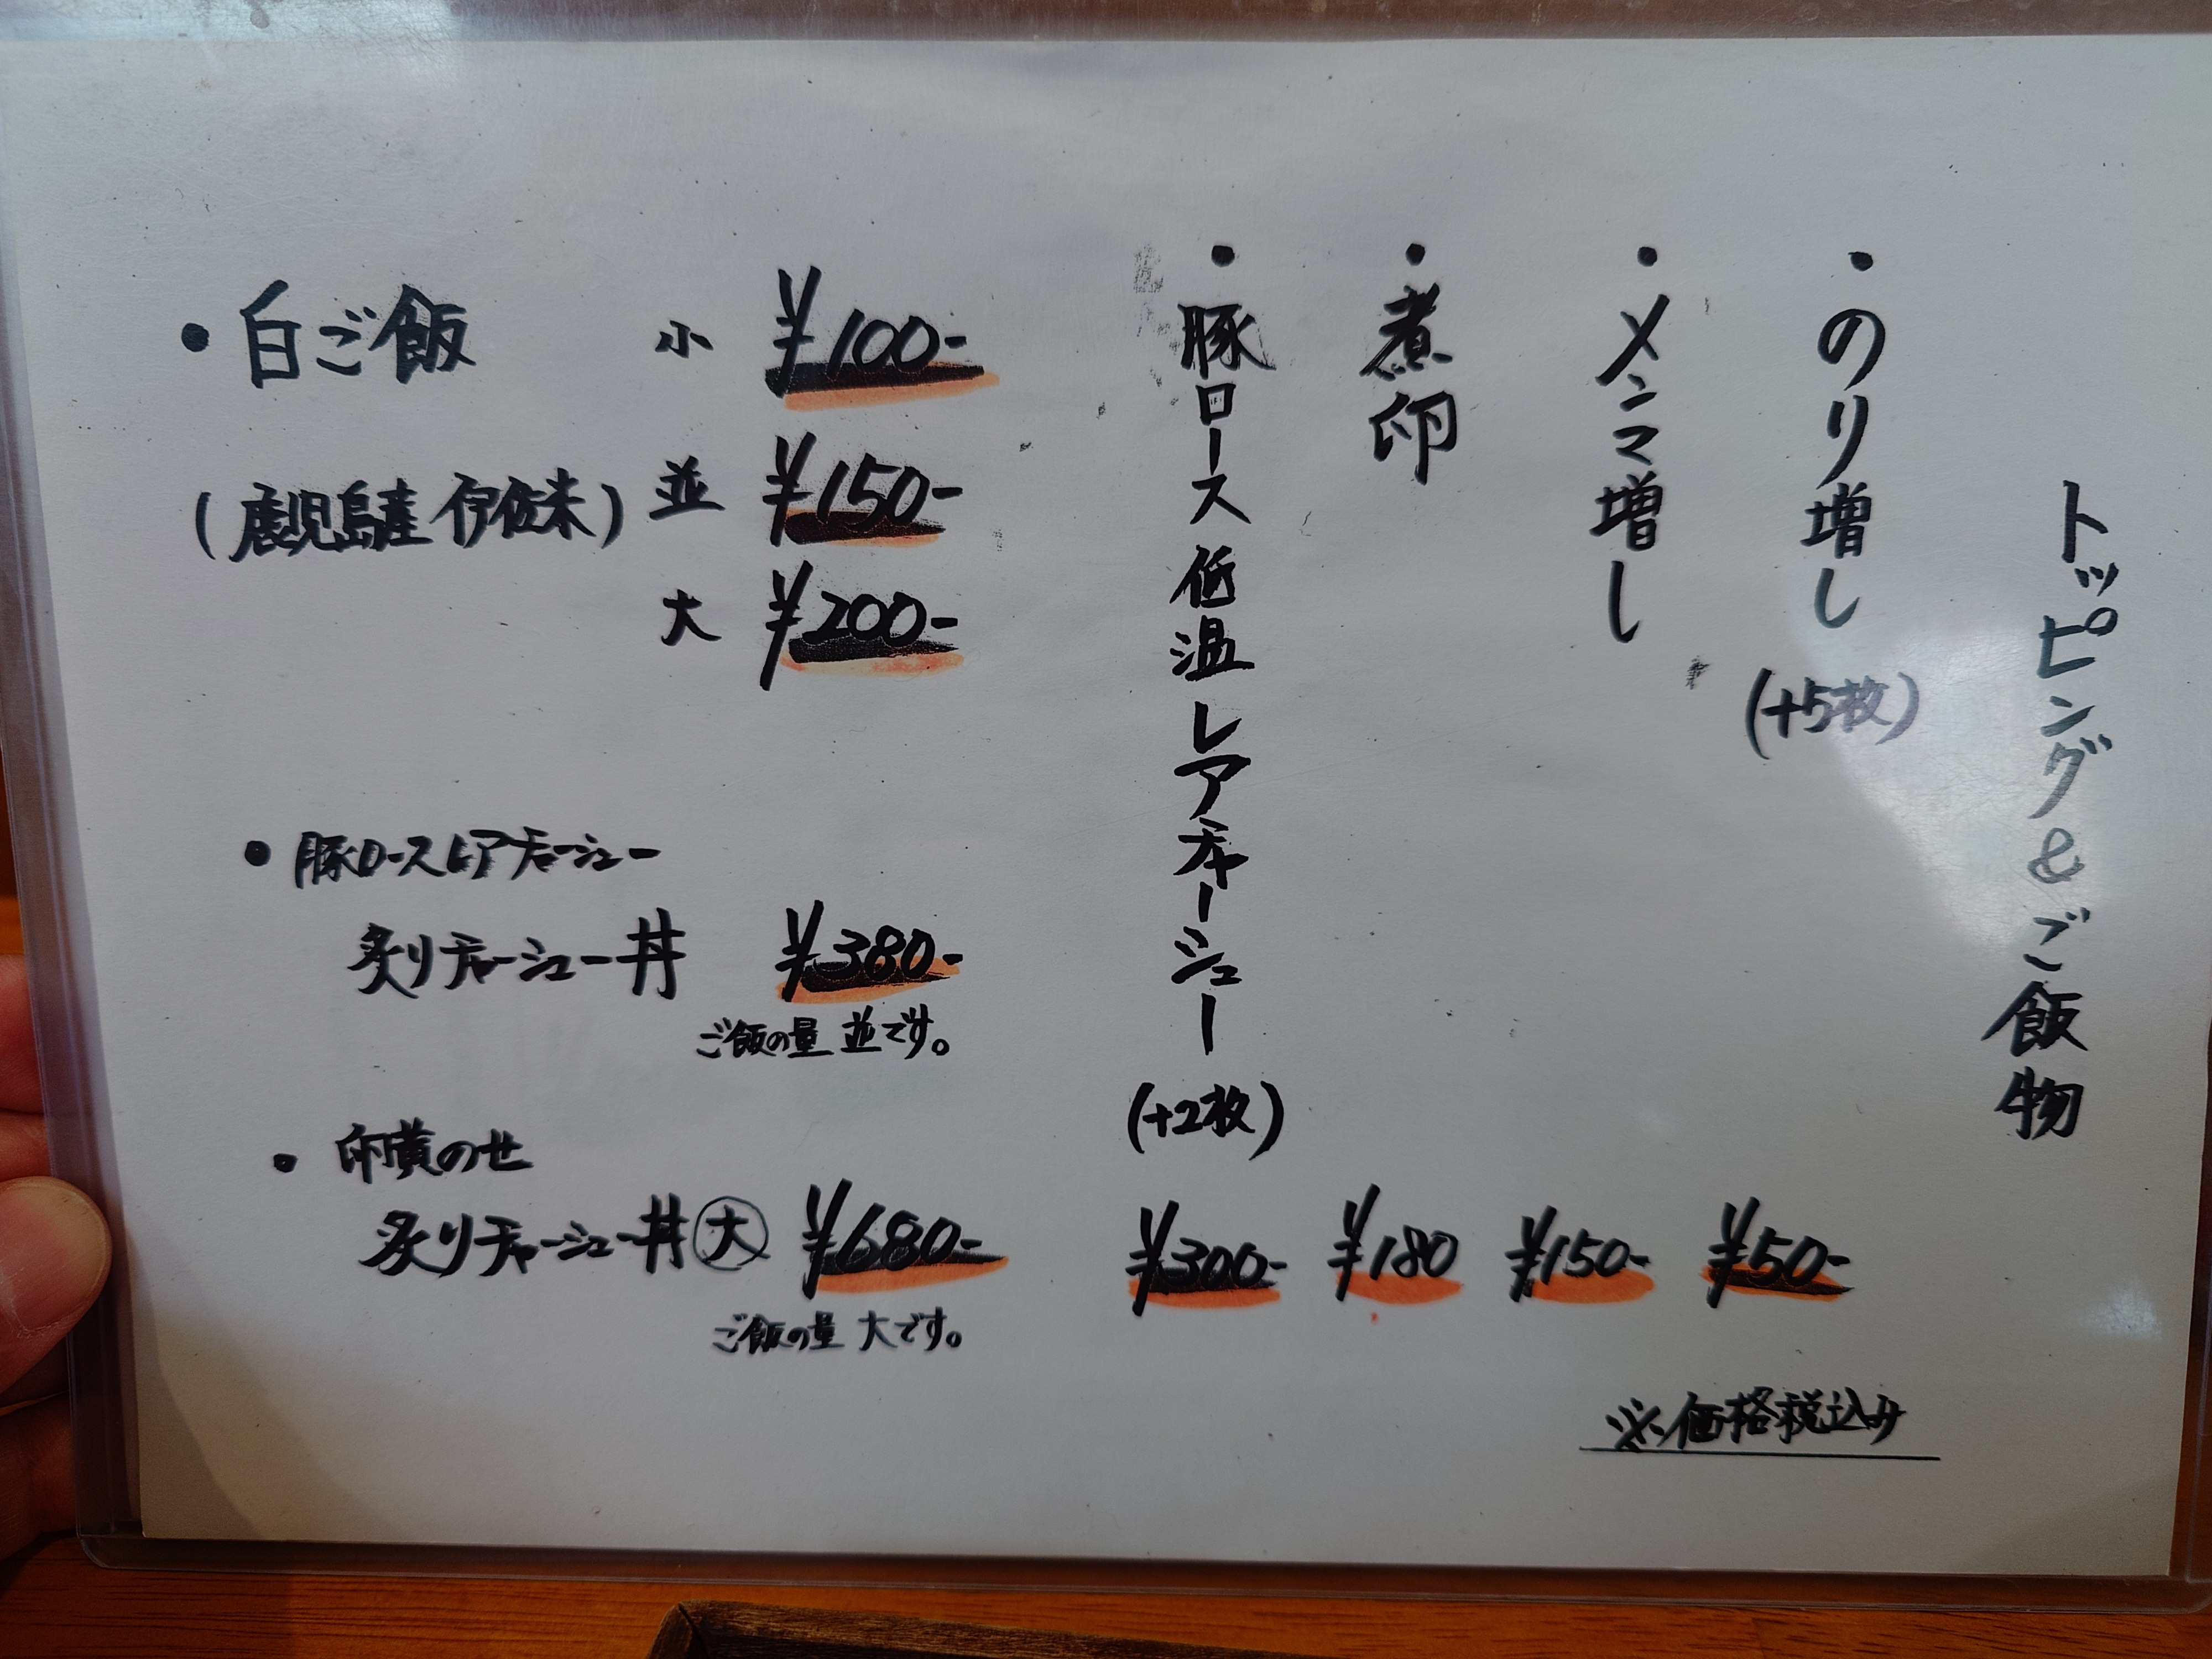 トッピング&ご飯物
・のり増し(+5枚) ¥50-
・メンマ増し ¥150-
・煮卵 ¥180
・豚ロース低温レアチャーシュー(+2枚) ¥300-
※価格税込み
・白ご飯 小 ¥100-
(鹿児島産 伊佐米) 並 ¥150-
大 ¥200-
・豚ロースレアチャーシュー
炙りチャーシュー丼 ¥380-
ご飯の量 並です。
・卵黄のせ
炙りチャーシュー丼大 ¥680-
ご飯の量 大です。